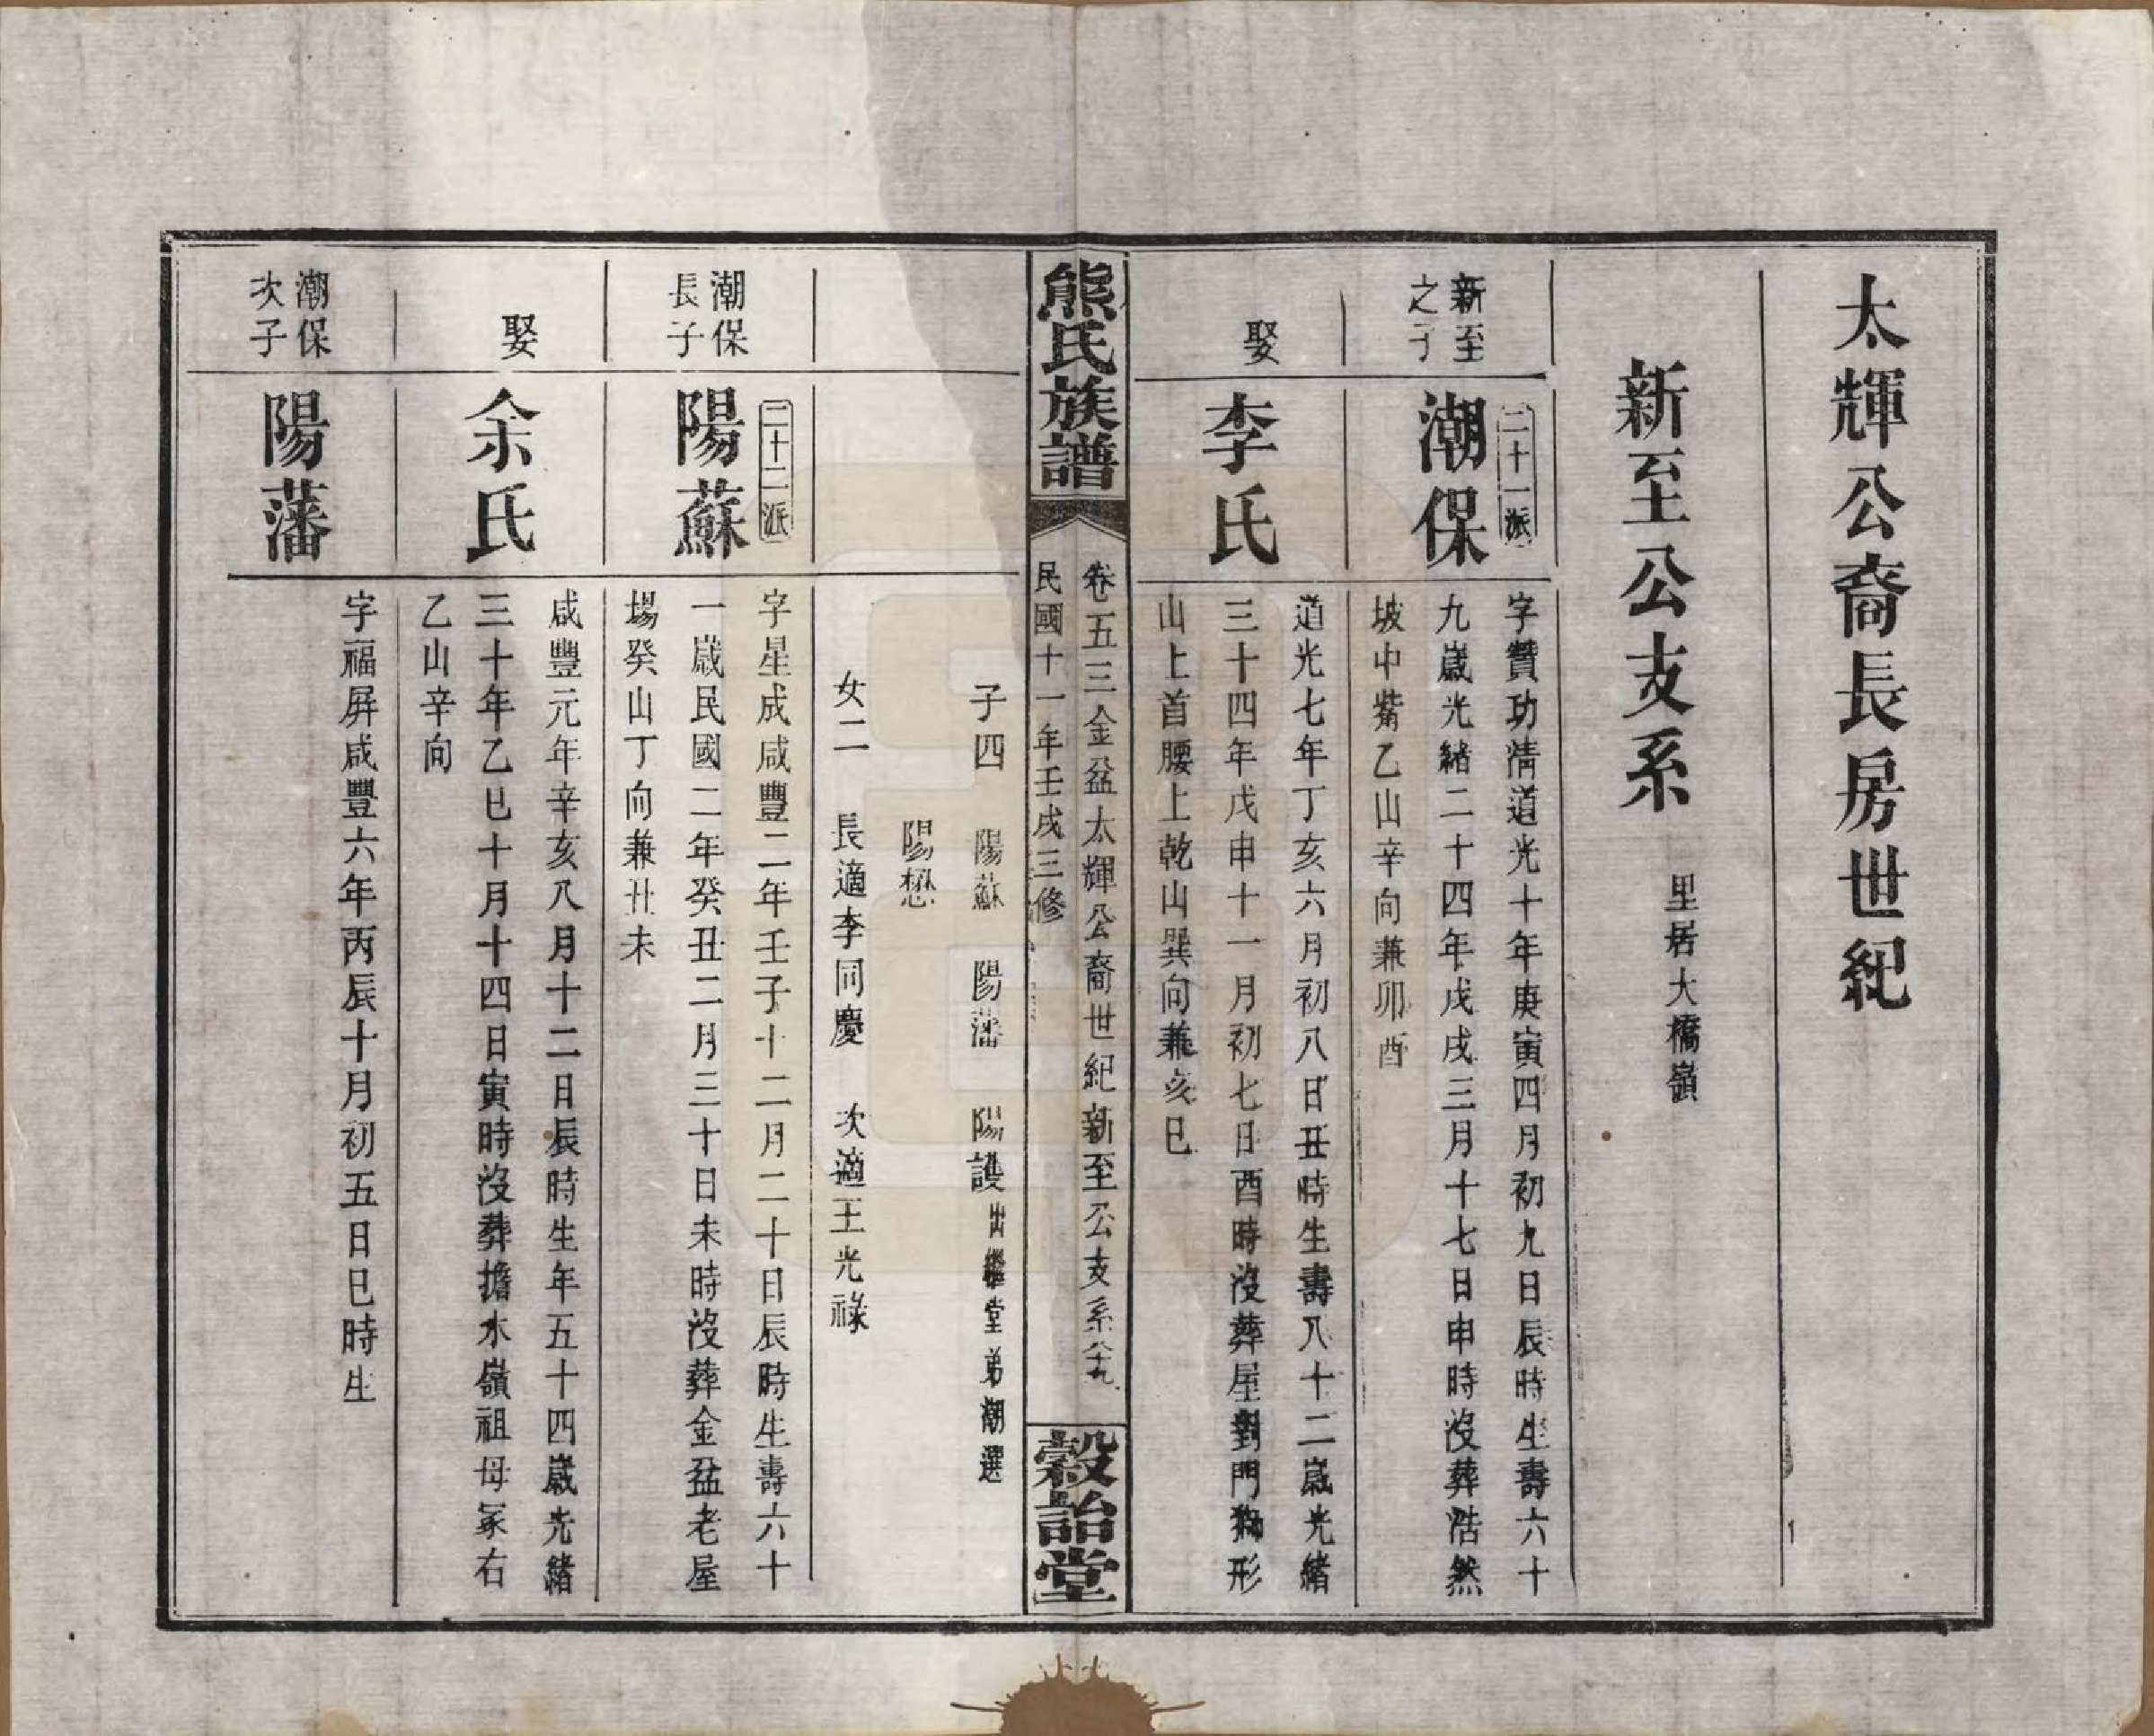 太輝公裔長房世紀
新至公支系
里居大橋嶺
新至
之子
二十一派
潮保
字贊功淸道光十年庚寅四月初九日辰時生壽六十
九歲光緒二十四年戊戌三月十七日申時沒葬浩然
坡中觜乙山辛向兼卯酉
娶
李氏
道光七年丁亥六月初八日丑時生壽八十二歲光緒
三十四年戊申十一月初七日酉時沒葬屋對門獅形
山上首腰上乾山巽向兼亥巳
熊氏族譜
卷五三金盆太輝公裔世紀新至公支系
民國十一年壬戌三修
穀詒堂
子四 陽蘇 陽藩 陽護出繼堂弟潮選
陽懋
女二 長適李同慶 次適王光祿
潮保
長子
二十二派
陽蘇
字星成咸豐二年壬子十二月二十日辰時生壽六十
一歲民國二年癸丑二月三十日未時沒葬金盆老屋
塲癸山丁向兼丑未
娶
余氏
咸豐元年辛亥八月十二日辰時生年五十四歲光緒
三十年乙巳十月十四日寅時沒葬擔水嶺祖母冢右
乙山辛向
潮保
次子
陽藩
字福屏咸豐六年丙辰十月初五日巳時生